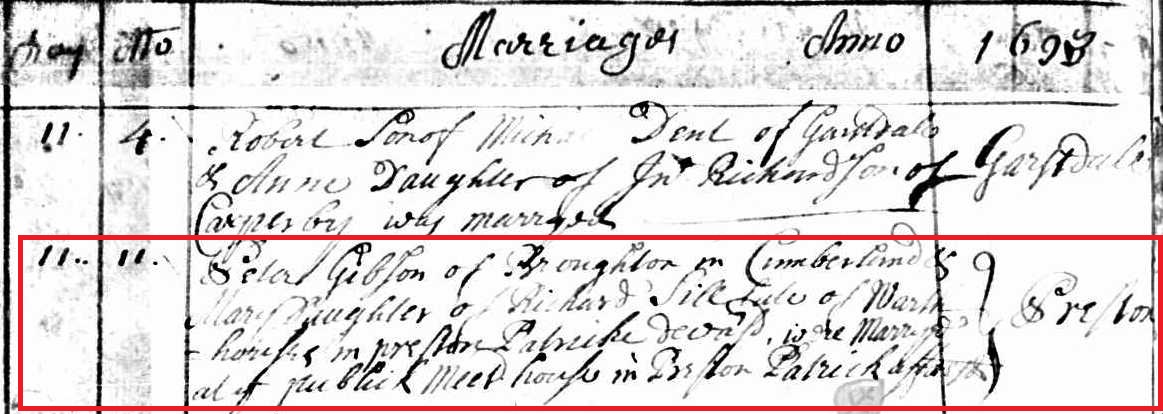 Day Mo Marriages Anno 1698
11. 4. Robert Son of Micha Dent of Garsdale
& Anne Daughter of Jno Richardson of Garsdale
Casperby was marryed
11.. 11. Peter Gibson of Broughton in Cumberland &
Mary Daughter of Richard Sill Late of Warth
-houses in preston Patricke deceasd, were Marryed Preston
at ye publick Meet house in Preston Patrick